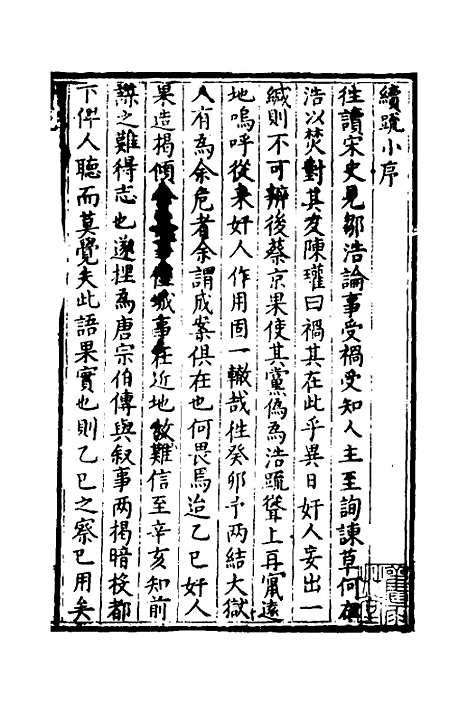 續疏小序
往讀宋史見鄒浩論事受禍受知人主至詢諫草何在
浩以焚對其友陳瓘曰禍其在此乎異日奸人妄出一
緘則不可辨後蔡京果使其黨偽為浩疏聳上再竄遠
地嗚呼從來奸人作用固一轍哉徃癸卯予兩結大獄
人有為余危者余謂成案俱在也何畏焉迨乙巳奸人
果造揭傾 城事在近地故難信至辛亥知前
謀之難得志也遂捏為唐宗伯傳與叙事兩揭暗投都
下俾人聽而莫覺夫此語果實也則乙巳之察已用矣